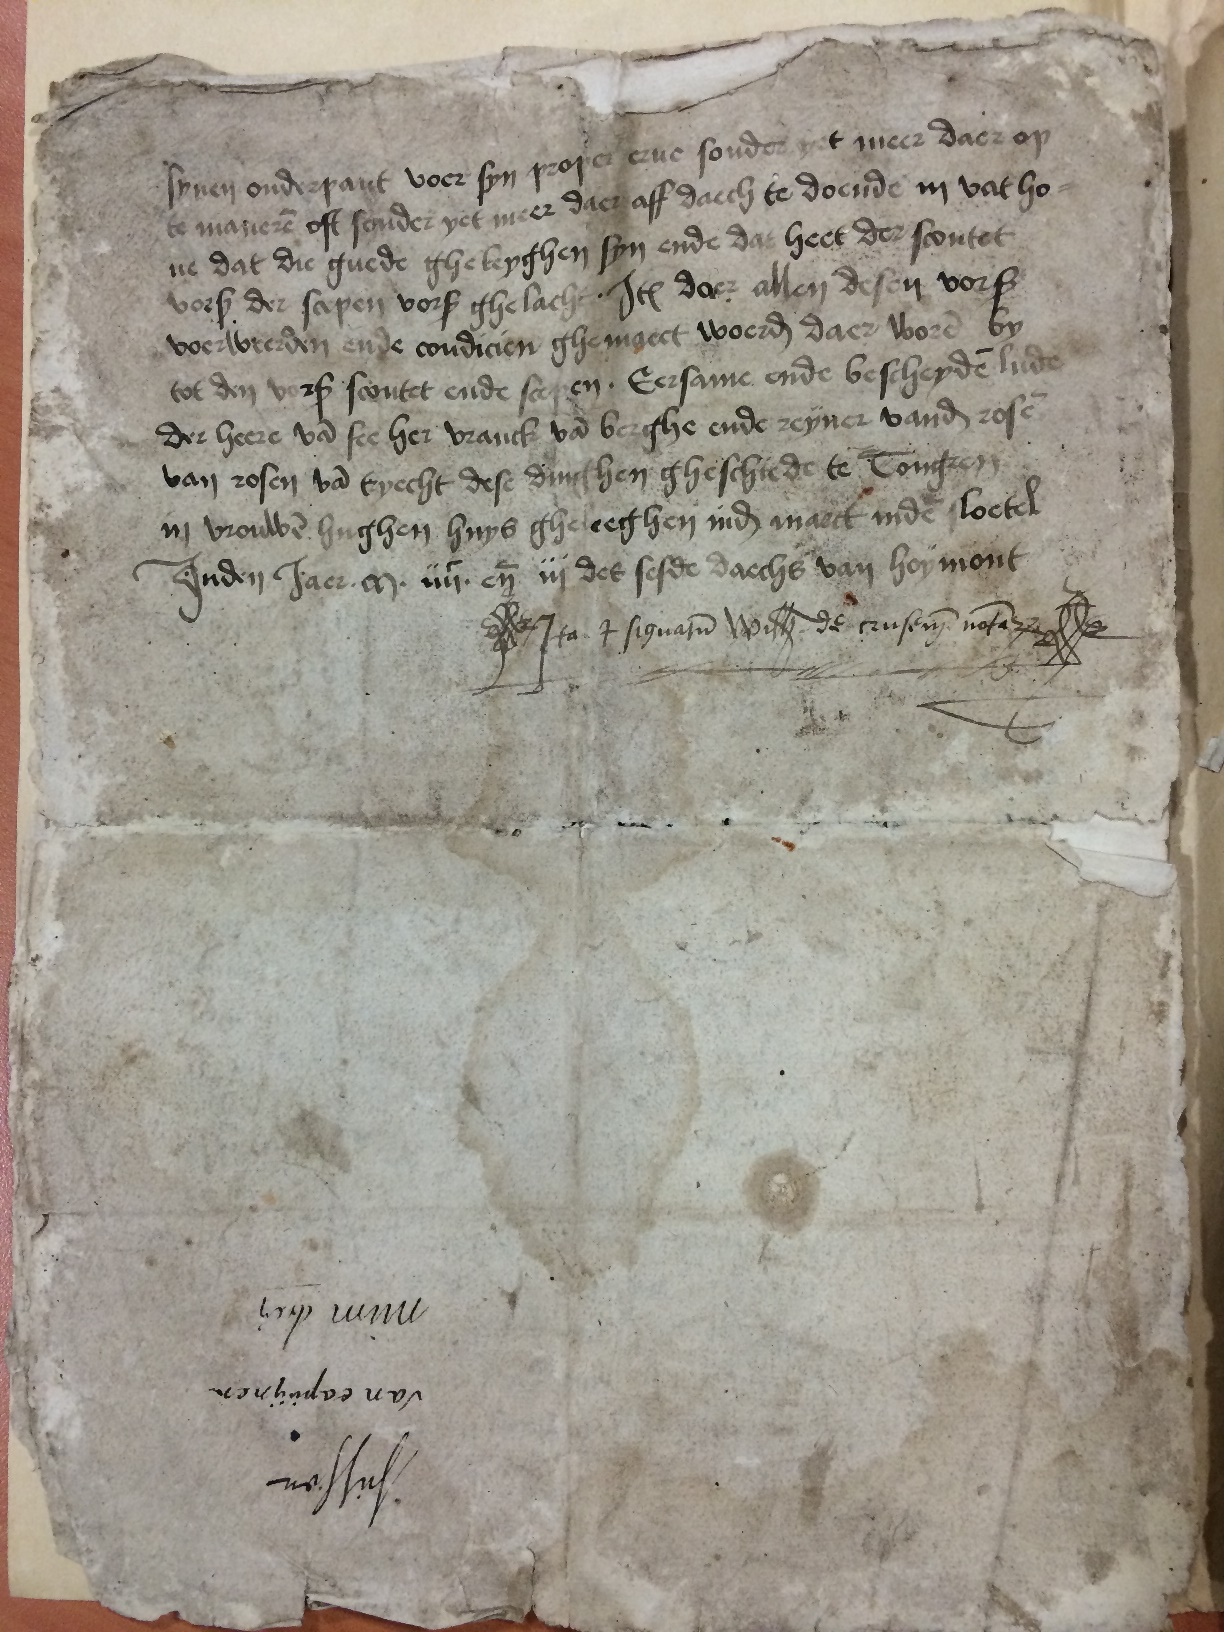 synen onderpant voer syn proper erve sonder yet meer daer op
te manerē oft sonder yet meer daer aff daech te doende in wat ho=
ue dat die guede ghelegghen syn ende dat heet der scoutet
vors̄ der scepen vors̄ ghelacht. Itē doer allen desen vors̄
voerwerden ende condicien ghemaect woerdē daer worē by
tot den vors̄ scoutet ende scepen. Eersame ende bescheydē lude
der heere vā her vranck vā berghe ende reyner vandē rosē
van rosen vā tryecht dese dinghen gheschiede te Tongren
in vrouwē hughen huys gheleeghen indē marct indē sloetel
Inden Jaer. m. iiijc. eñ iij des sesde daechs van hoymont
Ita ē signatū Willm̄ de notar
van copijnen